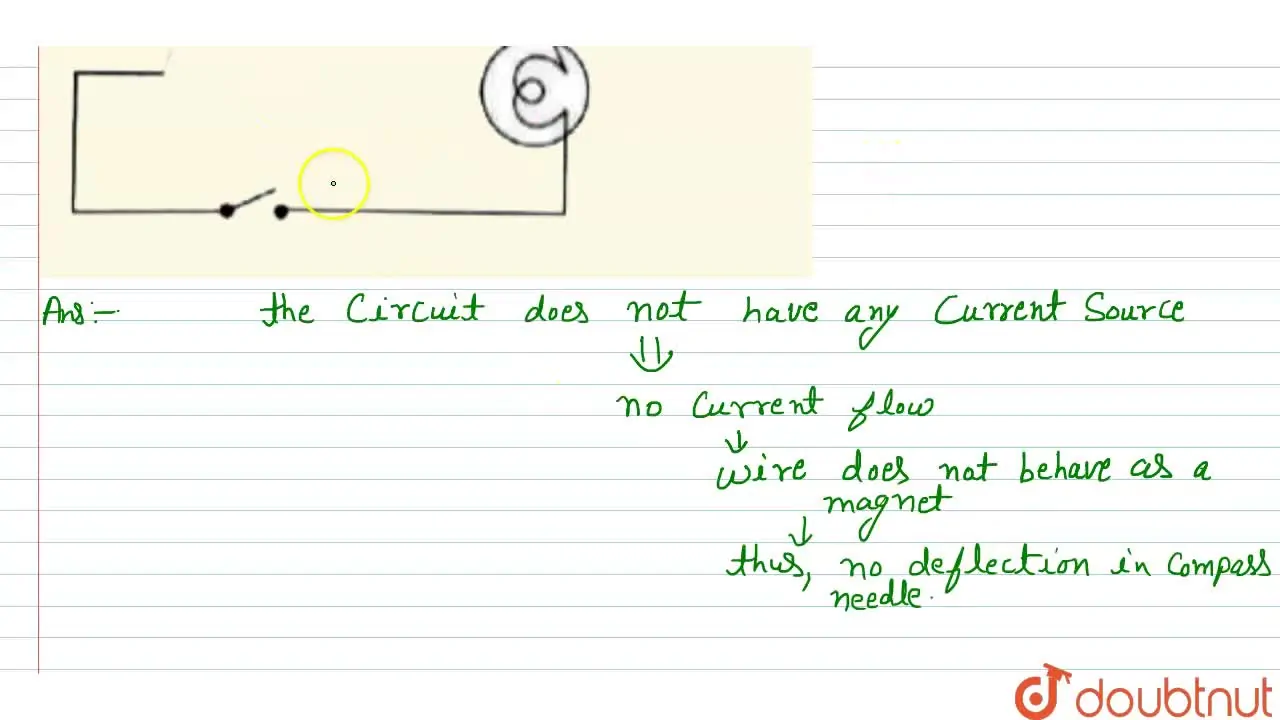 Ans:- the Circuit does not have any Current Source
no Current flow
wire does not behave as a
magnet
thus, no deflection in Compass
needle.
doubtnut